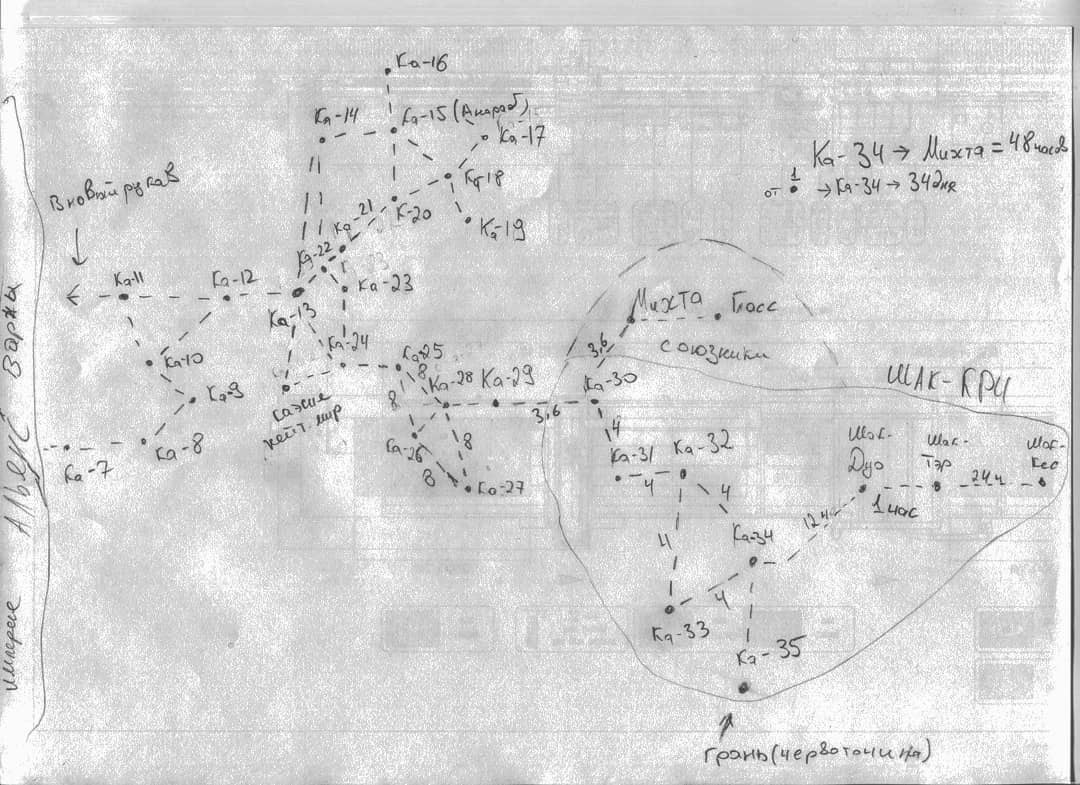 Ка-16
Ка-14
Ка-15 (Анараб)
Ка-17
Ка-34 → Михта = 48 часов
от 1 → Ка-34 → 34 дня
В новый рукав
Ка-18
Ка-21
К-20
Ка-19
Ка-22
Ка-11
Ка-12
Ка-23
Ка-13
Михта
Глосс
союзники
3,6
Ка-24
Ка-10
Ка-25
8
Ка-28
Ка-29
Ка-30
ШАК-КРИ
Ка-9
нейт. мир
8
3,6
4
Ка-7
Ка-8
Ка-26
8
8
Ка-27
Ка-31
4
Ка-32
4
Шак-
Дуо
Шак-
Тэр
Шак-
Кео
1 час
24ч
12ч
Ка-34
4
4
Ка-33
Ка-35
Грань (червоточина)
империя Альянс Варжы